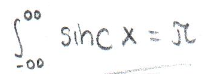 ∫_{-∞}^{∞} sinc x = π